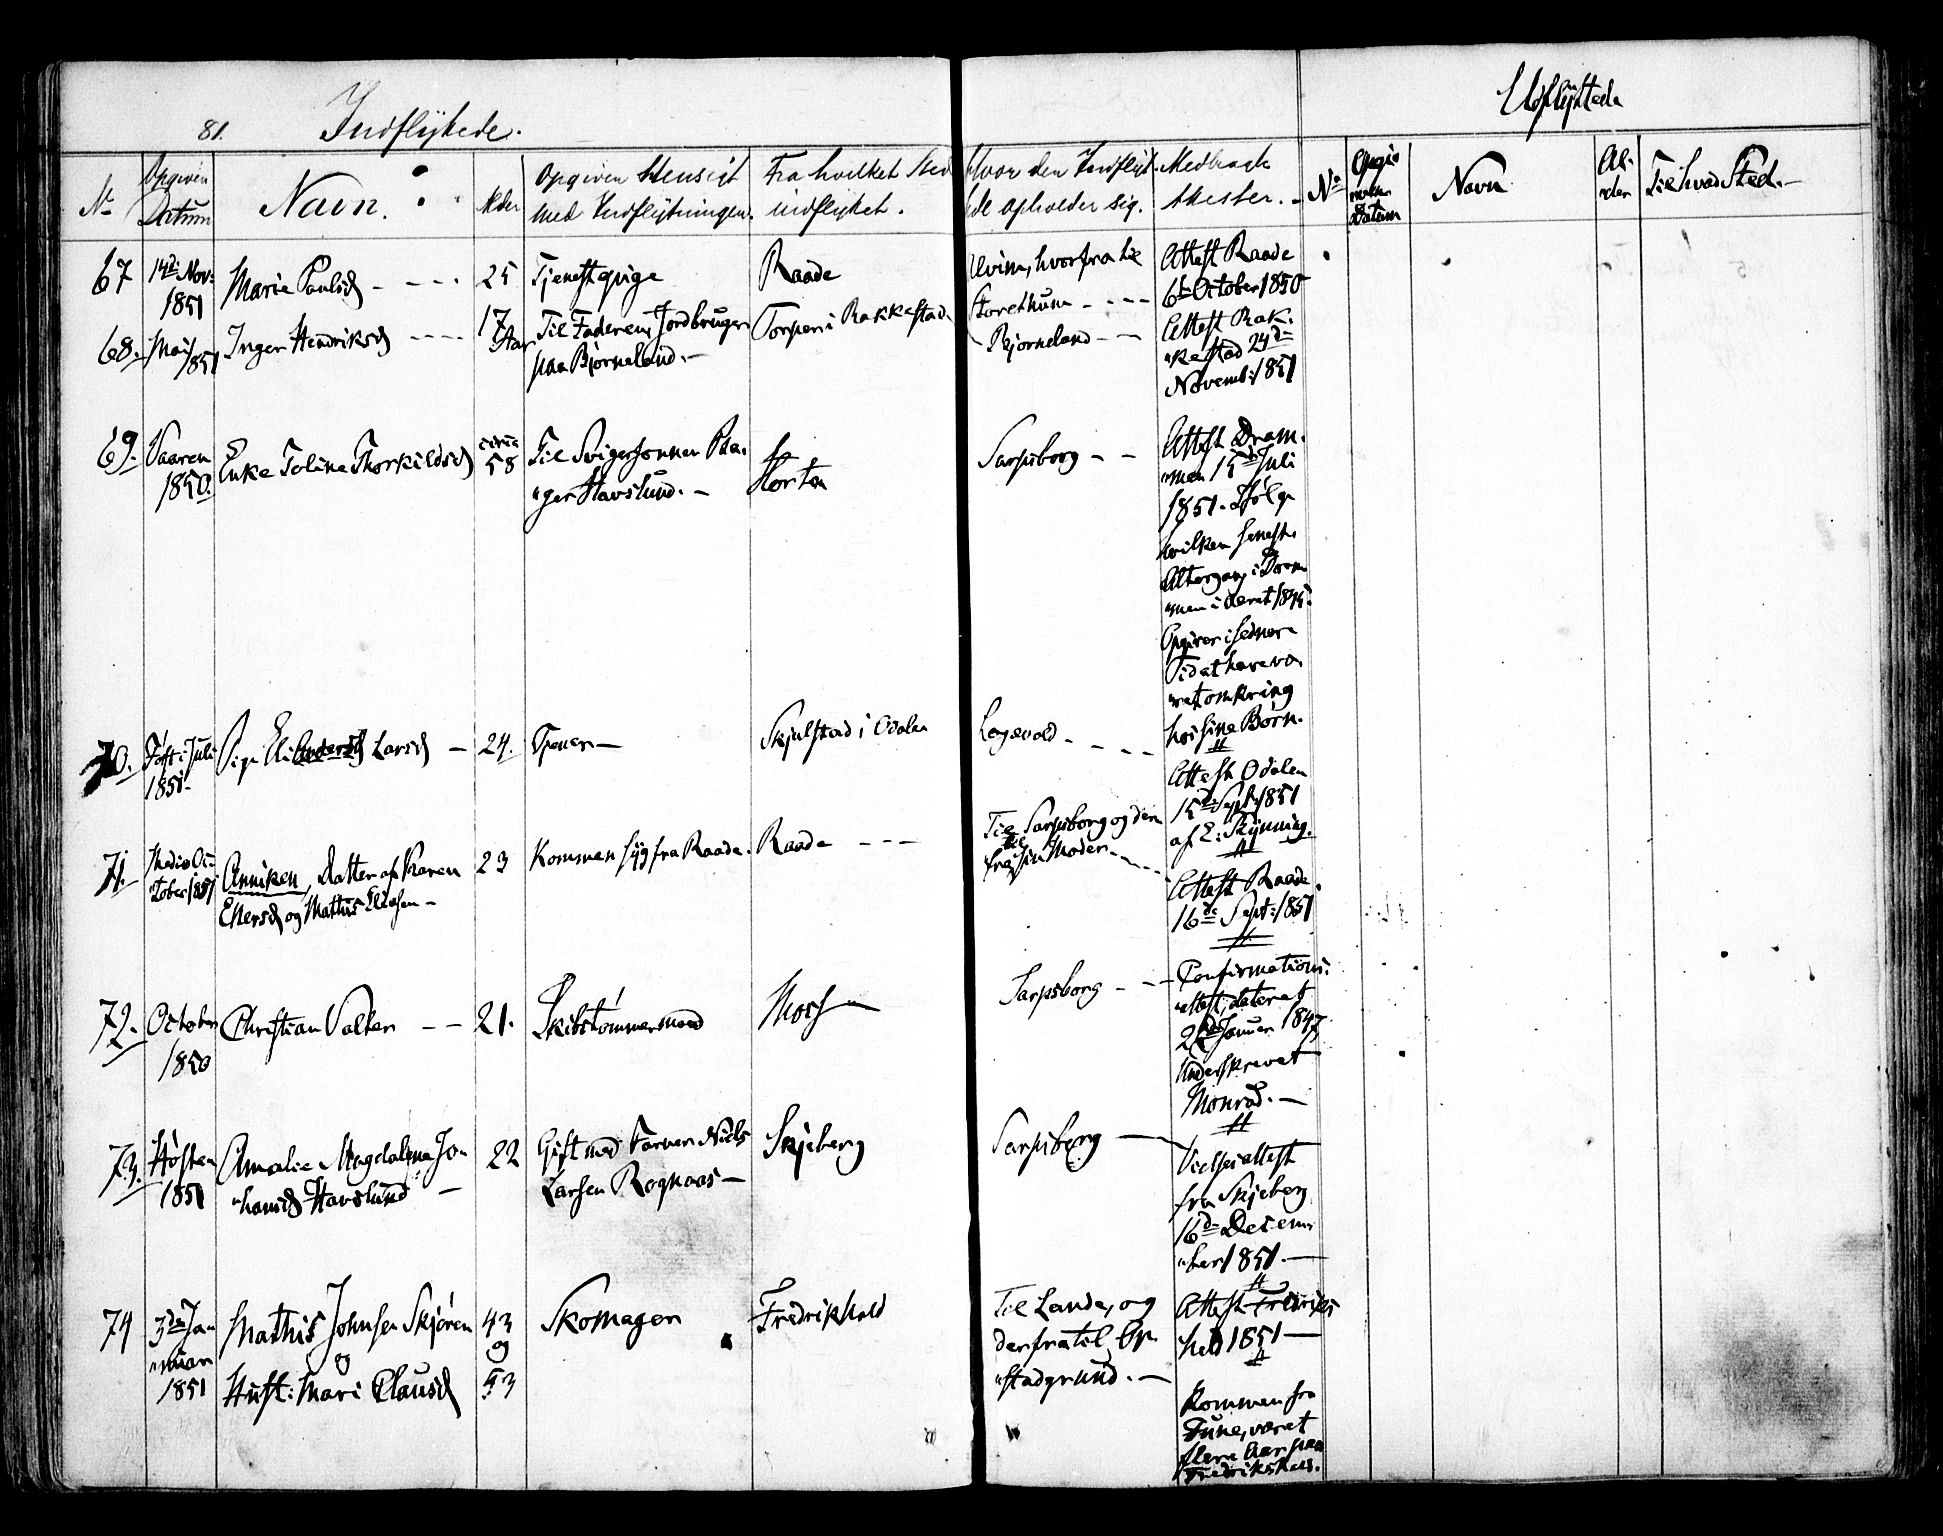 81. Indflyttede.
Udflyttede
No
Opgiven Datum
Navn.
Alder
Opgiven Hensigt
med Indflytningen.
Fra hvilket Sted
indflyttet.
Hvor den Indflyt-
de opholder sig.
Medbragte
Attester.
No
Opgi-
ven
Datum
Navn
Al-
der
Til hvad Sted.
67
14de Nov:
1851
Marie Paulsd
25
Tjenestepige
Raade
hvorfra til
Storethune
Attest Raade
6te October 1850
68.
Mai
1851
Inger Hendriksd
17
Aar
Til Faderen, Jordbruger
paa Bjørneland.
Torper i Rakkestad
Bjørneland
Attest Rak-
kestad 24de
Novemb: 1851
69.
Vaaren
1850.
Enke Toline Thorkildsd
circa
58
Til Svigersønnen Bsa-
ger Havslund.
Horten
Sarpsborg
Attest Dram-
men 15de Juli
1851. Ifølge
hvilken senest
Altergang i Dram-
men i Aaret 1845.
Opgiver i sednere
Tid at have væ-
ret omkring
hos sine Børn.
70.
Høst i Juli
1851
Pige Eli Andersd Larsd
24.
Tjener
Skjulstad i Odalen
Attest Odalen
15de Sept: 1851
af E: Rynning.
71.
Medio Oc-
tober 1851
Anniken, Datter af Karen
Ellersd og Mathis Eliasen
23
Kommen syg fra Raade.
Raade
Til Sarpsborg og der
fra til sin Moder
Attest Raade
16de Sept: 1851
72.
October
1850
Christian Valker
21.
Skibstømmermand
Moss
Sarpsborg
Confirmations-
attest, dateret
Januar 1847
Underskrevet
Monrad.
73.
Høsten
1851
Amalie Magdalena Jo-
hansd Havslund
22
Gift med Farver Niels
Larsen Rognaas
Skjeberg
Sarpsborg
Vielsesattest
fra Skjeberg
16de Decem-
ber 1851.
74
3de Ja-
nuar
1851
Mathis Johnsen Skjøren
og
Hust: Mari Clausd
43
og
53
Skomager
Fredrikshald
Til Lande, og
derfra til Op-
stadgrund.
Attest Fredriks
hald 1851
Kommen fra
Tune, været
flere Aar paa
Fredrikshald.